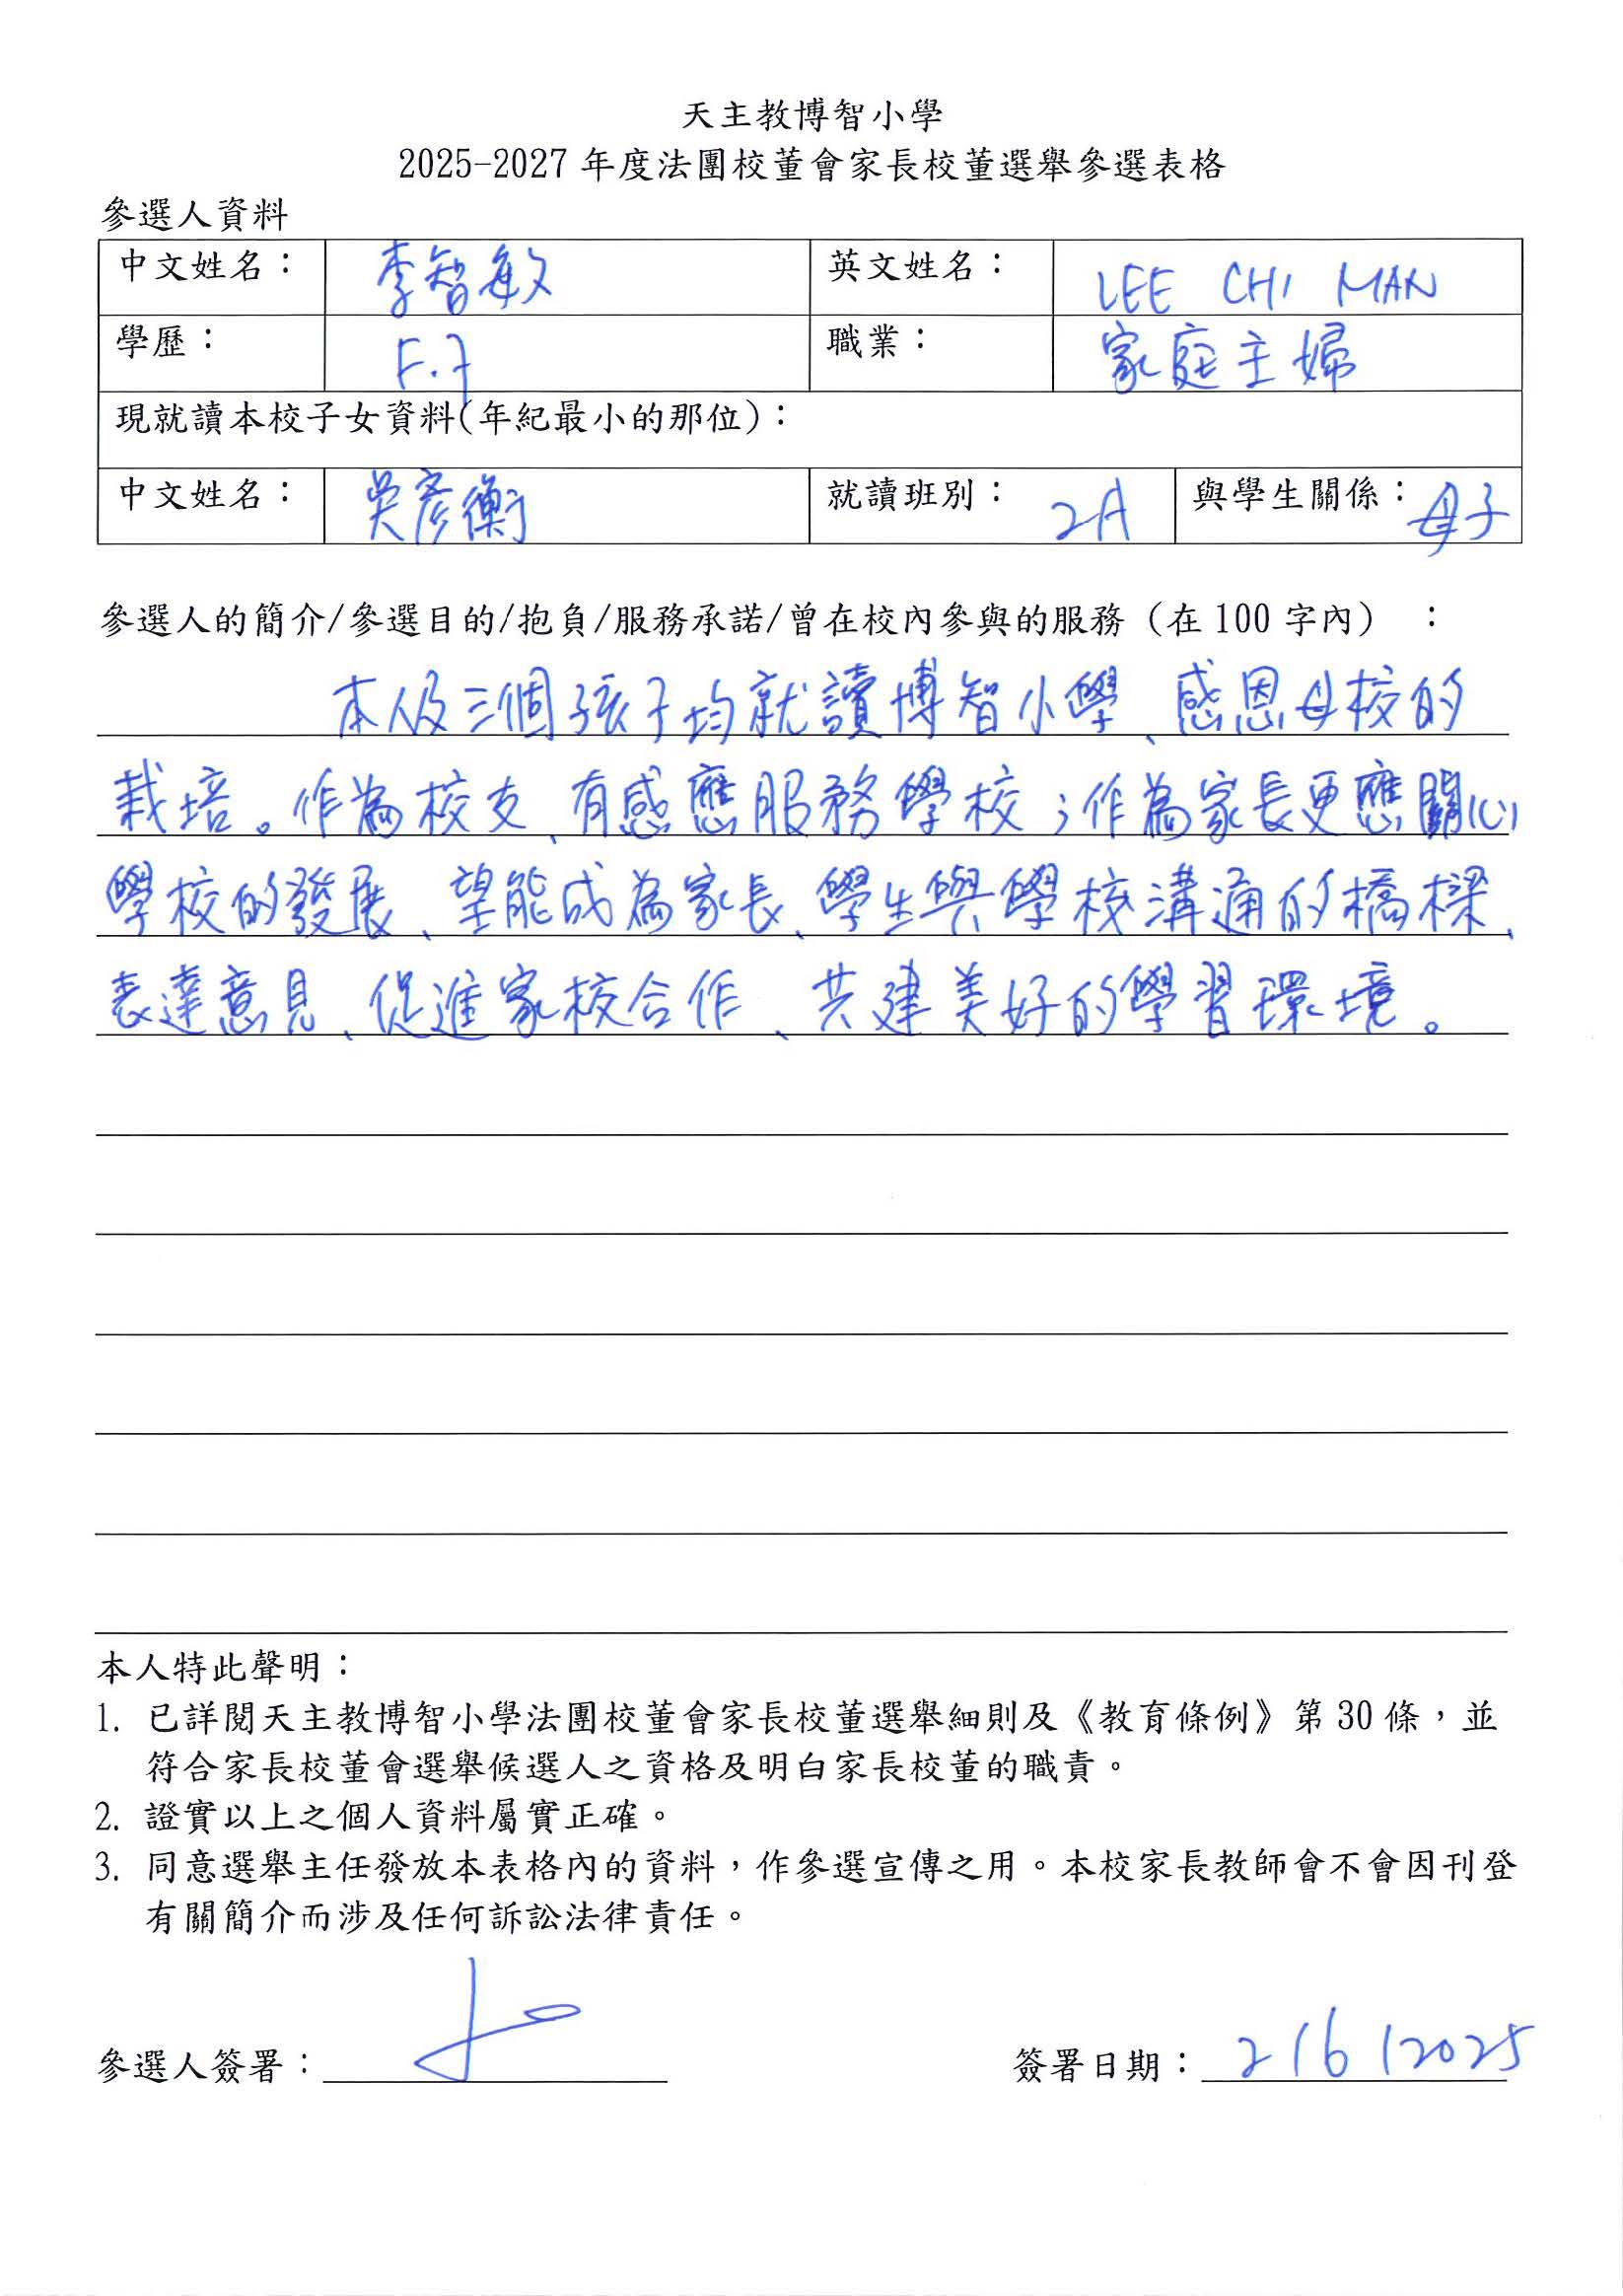 天主教博智小學
2025-2027 年度法團校董會家長校董選舉參選表格
參選人資料
中文姓名： 李智敏 英文姓名： LEE CHI MAN
學歷： F.7 職業： 家庭主婦
現就讀本校子女資料(年紀最小的那位)：
中文姓名： 吳彥衡 就讀班別： 2A 與學生關係： 母子
參選人的簡介/參選目的/抱負/服務承諾/曾在校內參與的服務（在 100 字內）：
本人及三個孩子均就讀博智小學、感恩母校的
栽培。作為校友、有感應服務學校；作為家長更應關心
學校的發展、望能成為家長、學生與學校溝通的橋樑、
表達意見、促進家校合作、共建美好的學習環境。
本人特此聲明：
1. 已詳閱天主教博智小學法團校董會家長校董選舉細則及《教育條例》第 30 條，並
符合家長校董會選舉候選人之資格及明白家長校董的職責。
2. 證實以上之個人資料屬實正確。
3. 同意選舉主任發放本表格內的資料，作參選宣傳之用。本校家長教師會不會因刊登
有關簡介而涉及任何訴訟法律責任。
參選人簽署： 簽署日期： 2/6/2025